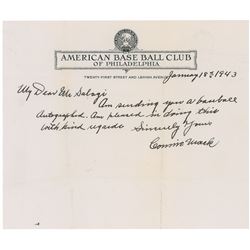 AMERICAN BASE BALL CLUB
OF PHILADELPHIA
TWENTY-FIRST STREET AND LEHIGH AVENUE
January 18th 1943
My Dear Mr Salagi
Am sending you a baseball
Autographed. Am pleased in doing this
with kind regards Sincerely Yours
Connie Mack